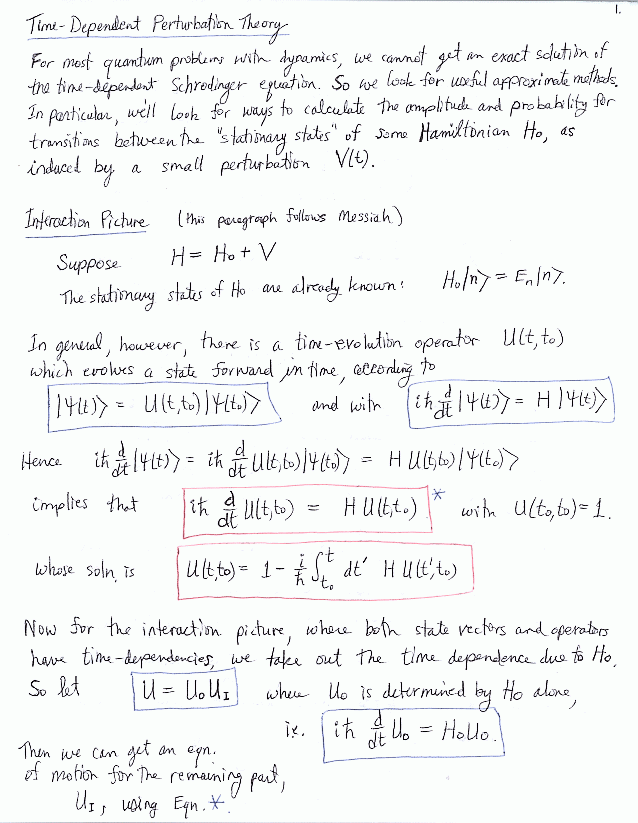 1.
Time-Dependent Perturbation Theory
For most quantum problems with dynamics, we cannot get an exact solution of
the time-dependent Schrodinger equation. So we look for useful approximate methods.
In particular, we'll look for ways to calculate the amplitude and probability for
transitions between the "stationary states" of some Hamiltonian H₀, as
induced by a small perturbation V(t).
Interaction Picture (this paragraph follows Messiah)
Suppose H = H₀ + V
The stationary states of H₀ are already known: H₀|n> = Eₙ|n>.
In general, however, there is a time-evolution operator U(t,t₀)
which evolves a state forward in time, according to
|Ψ(t)> = U(t,t₀)|Ψ(t₀)> and with iħ d/dt |Ψ(t)> = H |Ψ(t)>
Hence iħ d/dt |Ψ(t)> = iħ d/dt U(t,t₀)|Ψ(t₀)> = H U(t,t₀)|Ψ(t₀)>
implies that iħ d/dt U(t,t₀) = H U(t,t₀) * with U(t₀,t₀)=1.
whose soln. is U(t,t₀) = 1 - i/ħ ∫_{t₀}^{t} dt' H U(t',t₀)
Now for the interaction picture, where both state vectors and operators
have time-dependencies, we take out the time dependence due to H₀.
So let U = U₀U_I where U₀ is determined by H₀ alone,
ie. iħ d/dt U₀ = H₀U₀.
Then we can get an eqn.
of motion for the remaining part,
U_I, using Eqn. *.